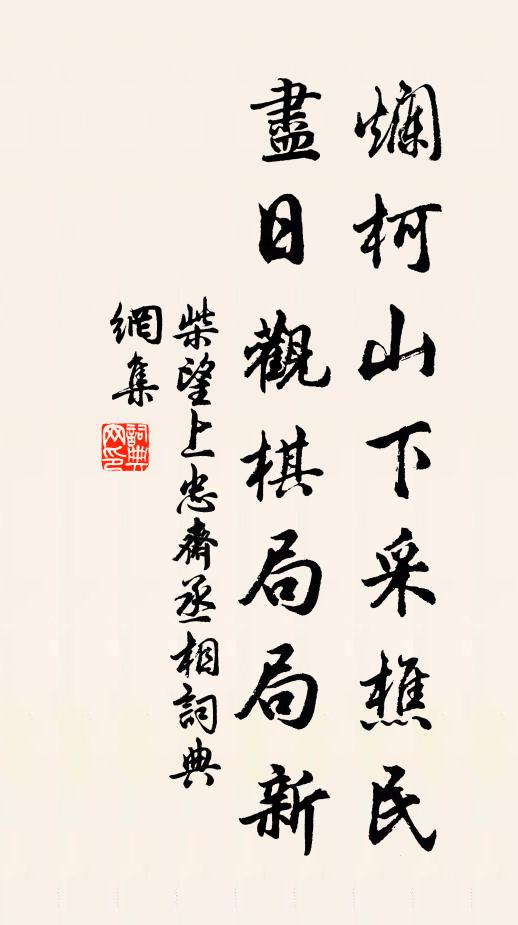 爛柯山下采樵民
盡日觀棋局局新
柴望上忠齋丞相詞典
網集
詞典
网印